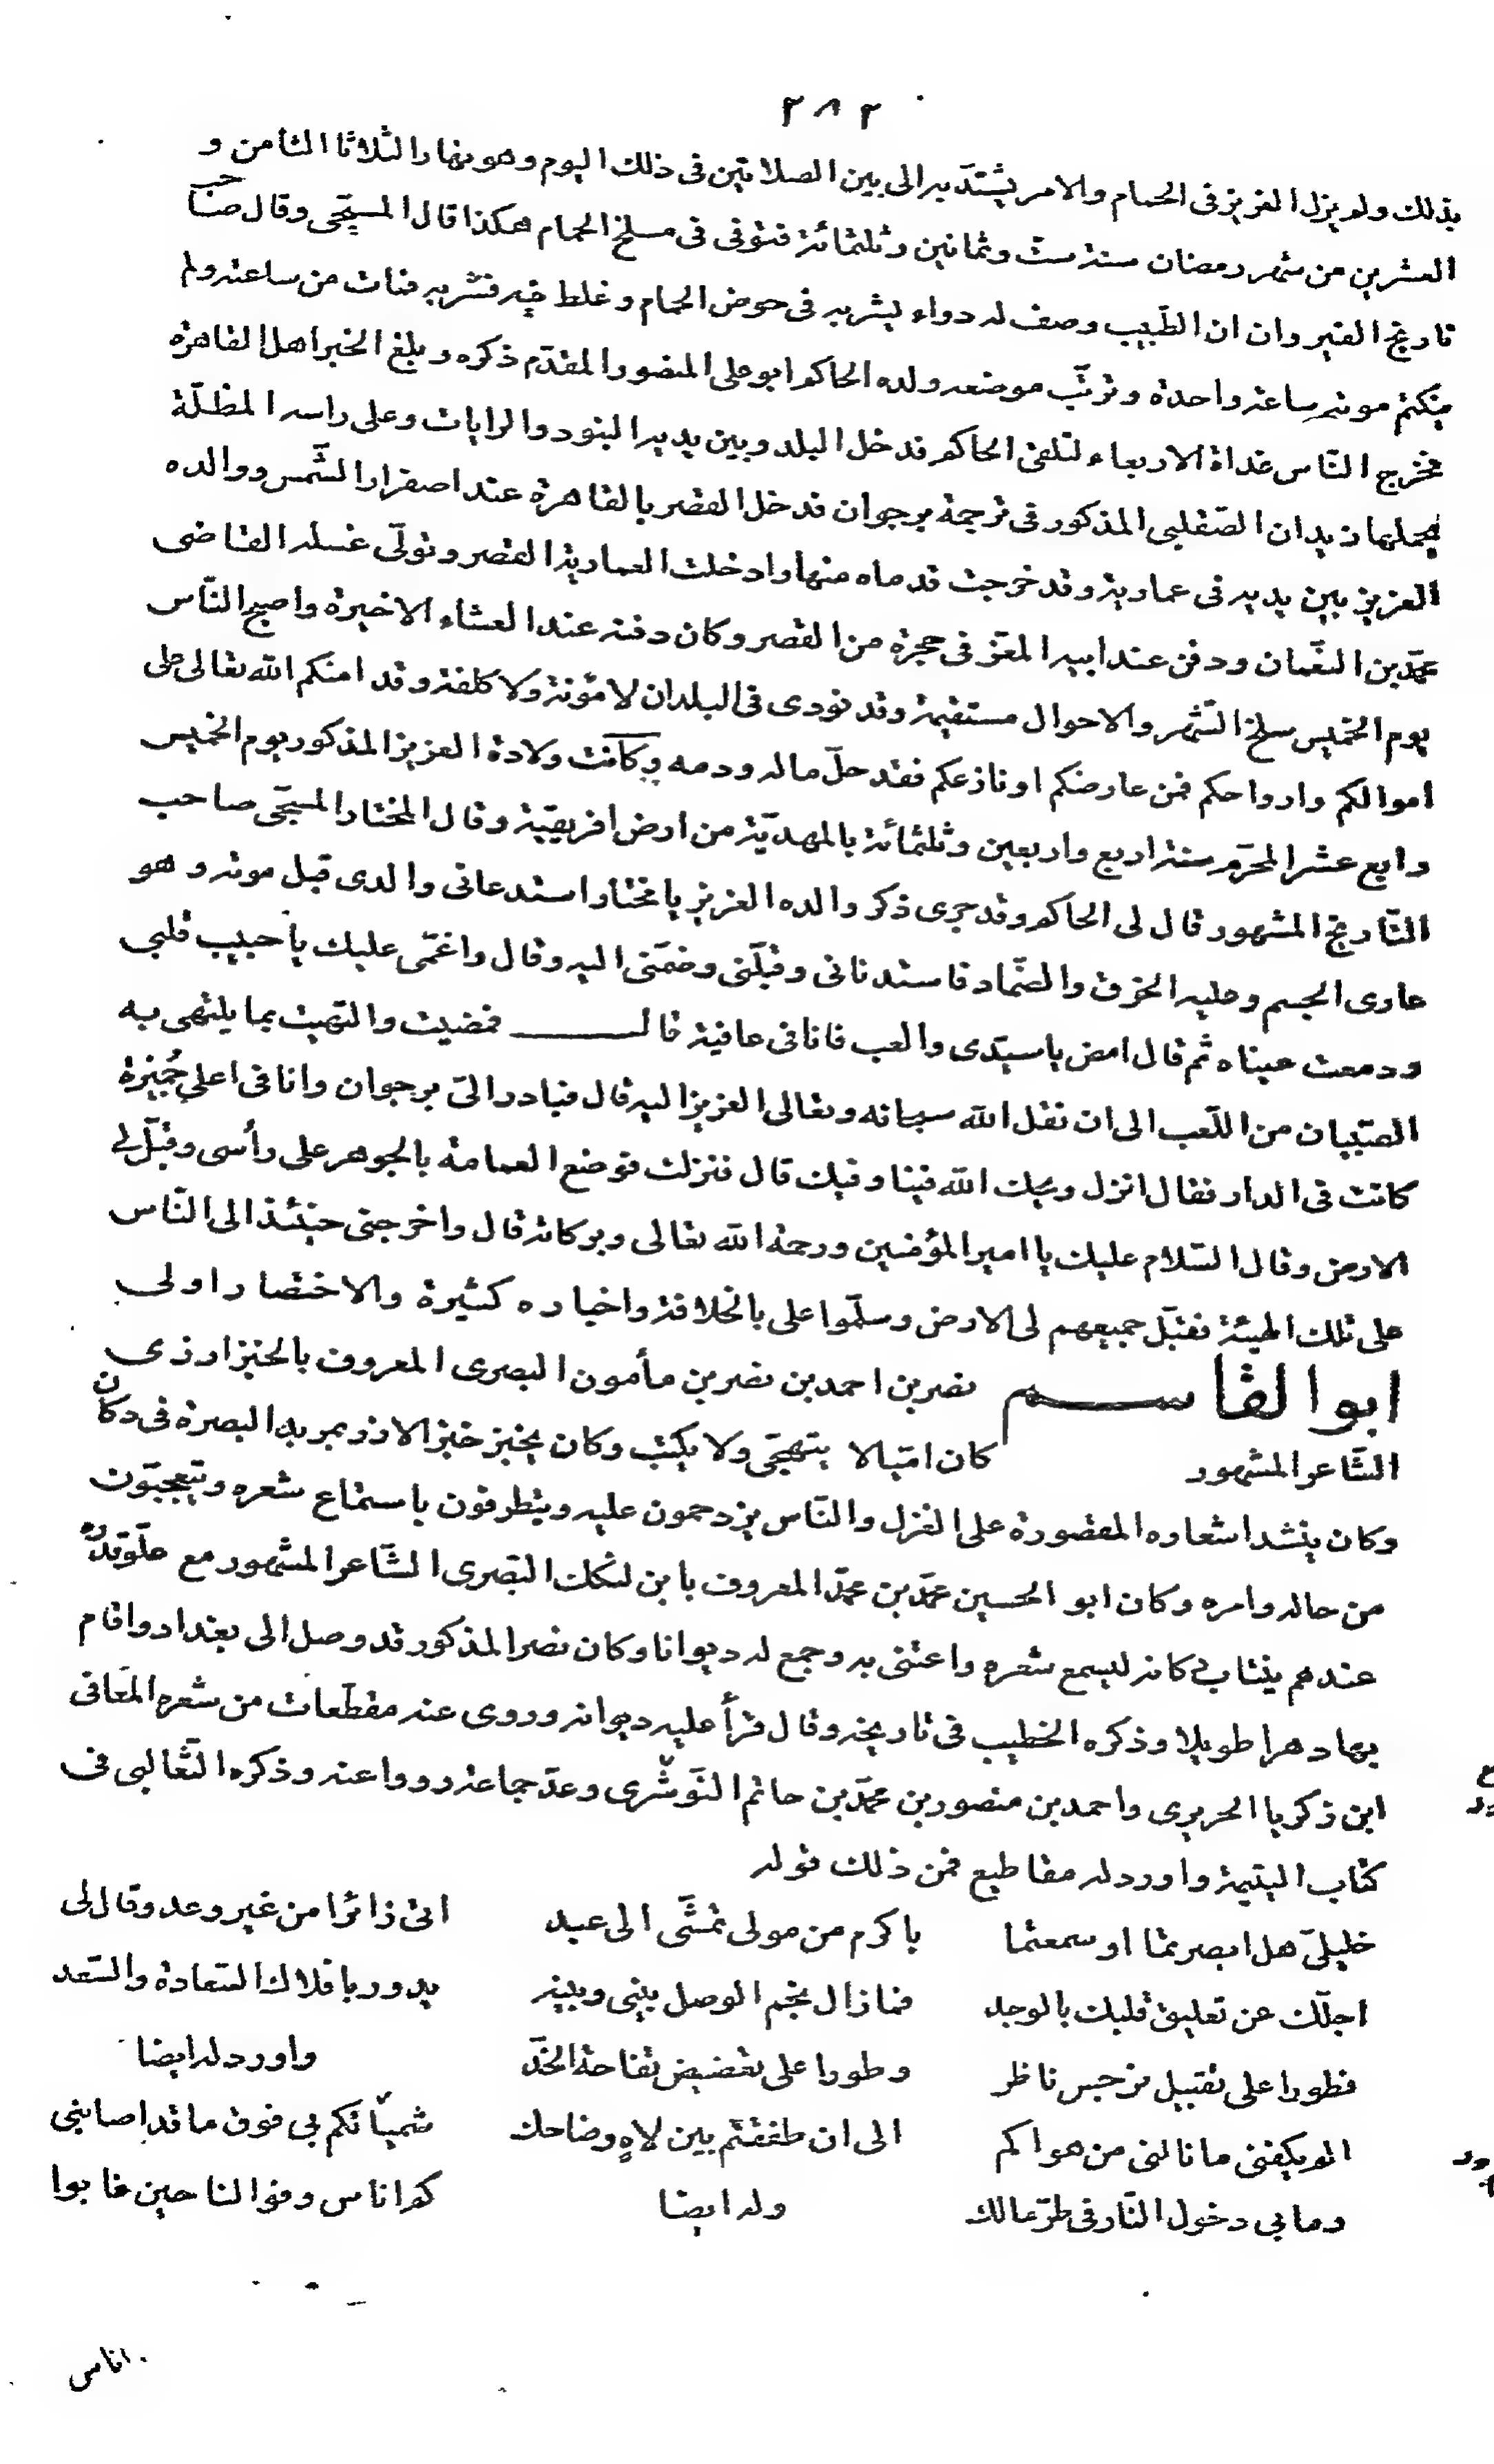 ٢٨٢
بذلك ولم يزل العزيز فى الحمام والامر يشتد به الى بين الصلاتين فى ذلك اليوم وهو نهار الثلاثا الثامن و
العشرين من شهر رمضان سنة ست وثمانين وثلثمائة فتوفى فى مسلخ الحمام هكذا قال المسبّحى وقال صاحب
تاريخ القيروان ان الطّبيب وصف له دواء يشربه فى حوض الحمام وغلط فيه فشربه فمات من ساعته ولم
ينكتم موته ساعة واحدة وترتّب موضعه ولده الحاكم ابو على المنصور المقدّم ذكره وبلغ الخبر اهل القاهرة
فخرج النّاس غداة الاربعاء لتلقى الحاكم فدخل البلد وبين يديه البنود والرايات وعلى راسه المظلّة
يحملها زيدان الصّقلبى المذكور فى ترجمة برجوان فدخل القصر بالقاهرة عند اصفرار الشّمس ووالده
العزيز بين يديه فى عمارية وقد خرجت قدماه منها وادخلت العمارية القصر وتولّى غسله القاضى
محمّد بن النعّمان ودفن عند ابيه المعّز فى حجرة من القصر وكان دفنه عند العشاء الاخيرة واصبح النّاس
يوم الخميس سلخ الشّهر والاحوال مستقيمة وقد نودى فى البلدان لا مؤنة ولا كلفة وقد امنكم الله تعالى على
اموالكم وارواحكم فمن عارضكم او نازعكم فقد حلّ ماله ودمه وكانت ولادة العزيز المذكور يوم الخميس
رابع عشر المحرّم سنة اربع واربعين وثلثمائة بالمهديّة من ارض افريقيّة وقال المختار المسبّحى صاحب
التّاريخ المشهور قال لى الحاكم وقد جرى ذكر والده العزيز يا مختار استدعانى والدى قبل موته وهو
عارى الجسم وعليه الخرق والضّماد فاستدنانى وقبلّنى وضمّنى اليه وقال واغمّى عليك يا حبيب قلبى
ودمعت عيناه ثم قال امض يا سيّدى والعب فانا فى عافية قال فمضيت والتهيت بما يلتهى به
الصّبيان من اللّعب الى ان نقل الله سبحانه وتعالى العزيز اليه قال فبادر الىّ برجوان وانا فى اعلى جُمّيزة
كانت فى الدار فقال انزل ويحك الله فينا وفيك قال فنزلت فوضع العمامة بالجوهر على رأسى وقبّل لى
الارض وقال السّلام عليك يا امير المؤمنين ورحمة الله تعالى وبركاته قال واخرجنى حينئذ الى النّاس
على تلك الهيئة فقبّل جميعهم لى الارض وسلّموا على بالخلافة واخباره كثيرة والاختصار اولى
ابو القاسم نصر بن احمد بن نصر بن مأمون البصرى المعروف بالخبزارزى
الشّاعر المشهور كان امّيا لا يتهجّى ولا يكتب وكان يخبز خبز الارز بمربد البصرة فى دكان
وكان ينشد اشعاره المقصورة على الغزل والنّاس يزدحمون عليه ويتطرفون باستماع شعره ويتعجّبون
من حاله وامره وكان ابو الحسين محمّد بن محمّد المعروف بابن لنكك البَصرى الشّاعر المشهور مع علّو قدره
عندهم ينتاب دكانه ليسمع شعره واعتنى به وجمع له ديوانا وكان نصر المذكور قد وصل الى بغداد واقام
بها دهرا طويلا وذكره الخطيب فى تاريخه وقال قرأ عليه ديوانه وروى عنه مقطّعات من شعره المعافى
ابن زكريا الحريرى واحمد بن منصور بن محمّد بن حاتم النّوشرى وعدّ جماعة رووا عنه وذكره الثّعالبى فى
كتاب اليتيمة واورد له مقاطيع فمن ذلك قوله
خليلىّ هل ابصرتما او سمعتما باكرم من مولى تمشّى الى عبد اتى زائرا من غير وعد وقال لى
اجلّك عن تعليق قلبك بالوجد فما زال نجم الوصل بينى وبينه يدور بافلاك السّعادة والسّعد
فطورا على تقبيل نرجس ناظر وطورا على تعضيض تفّاحة الخدّ واورد له ايضا
الم يكفنى ما نالنى من هواكم الى ان طفقتم بين لاهٍ وضاحك شماتتكم بى فوق ما قد اصابنى
وما بى دخول النّار فى طنز مالك وله ايضا كم اناس وفوا لنا حين غابوا
اناس